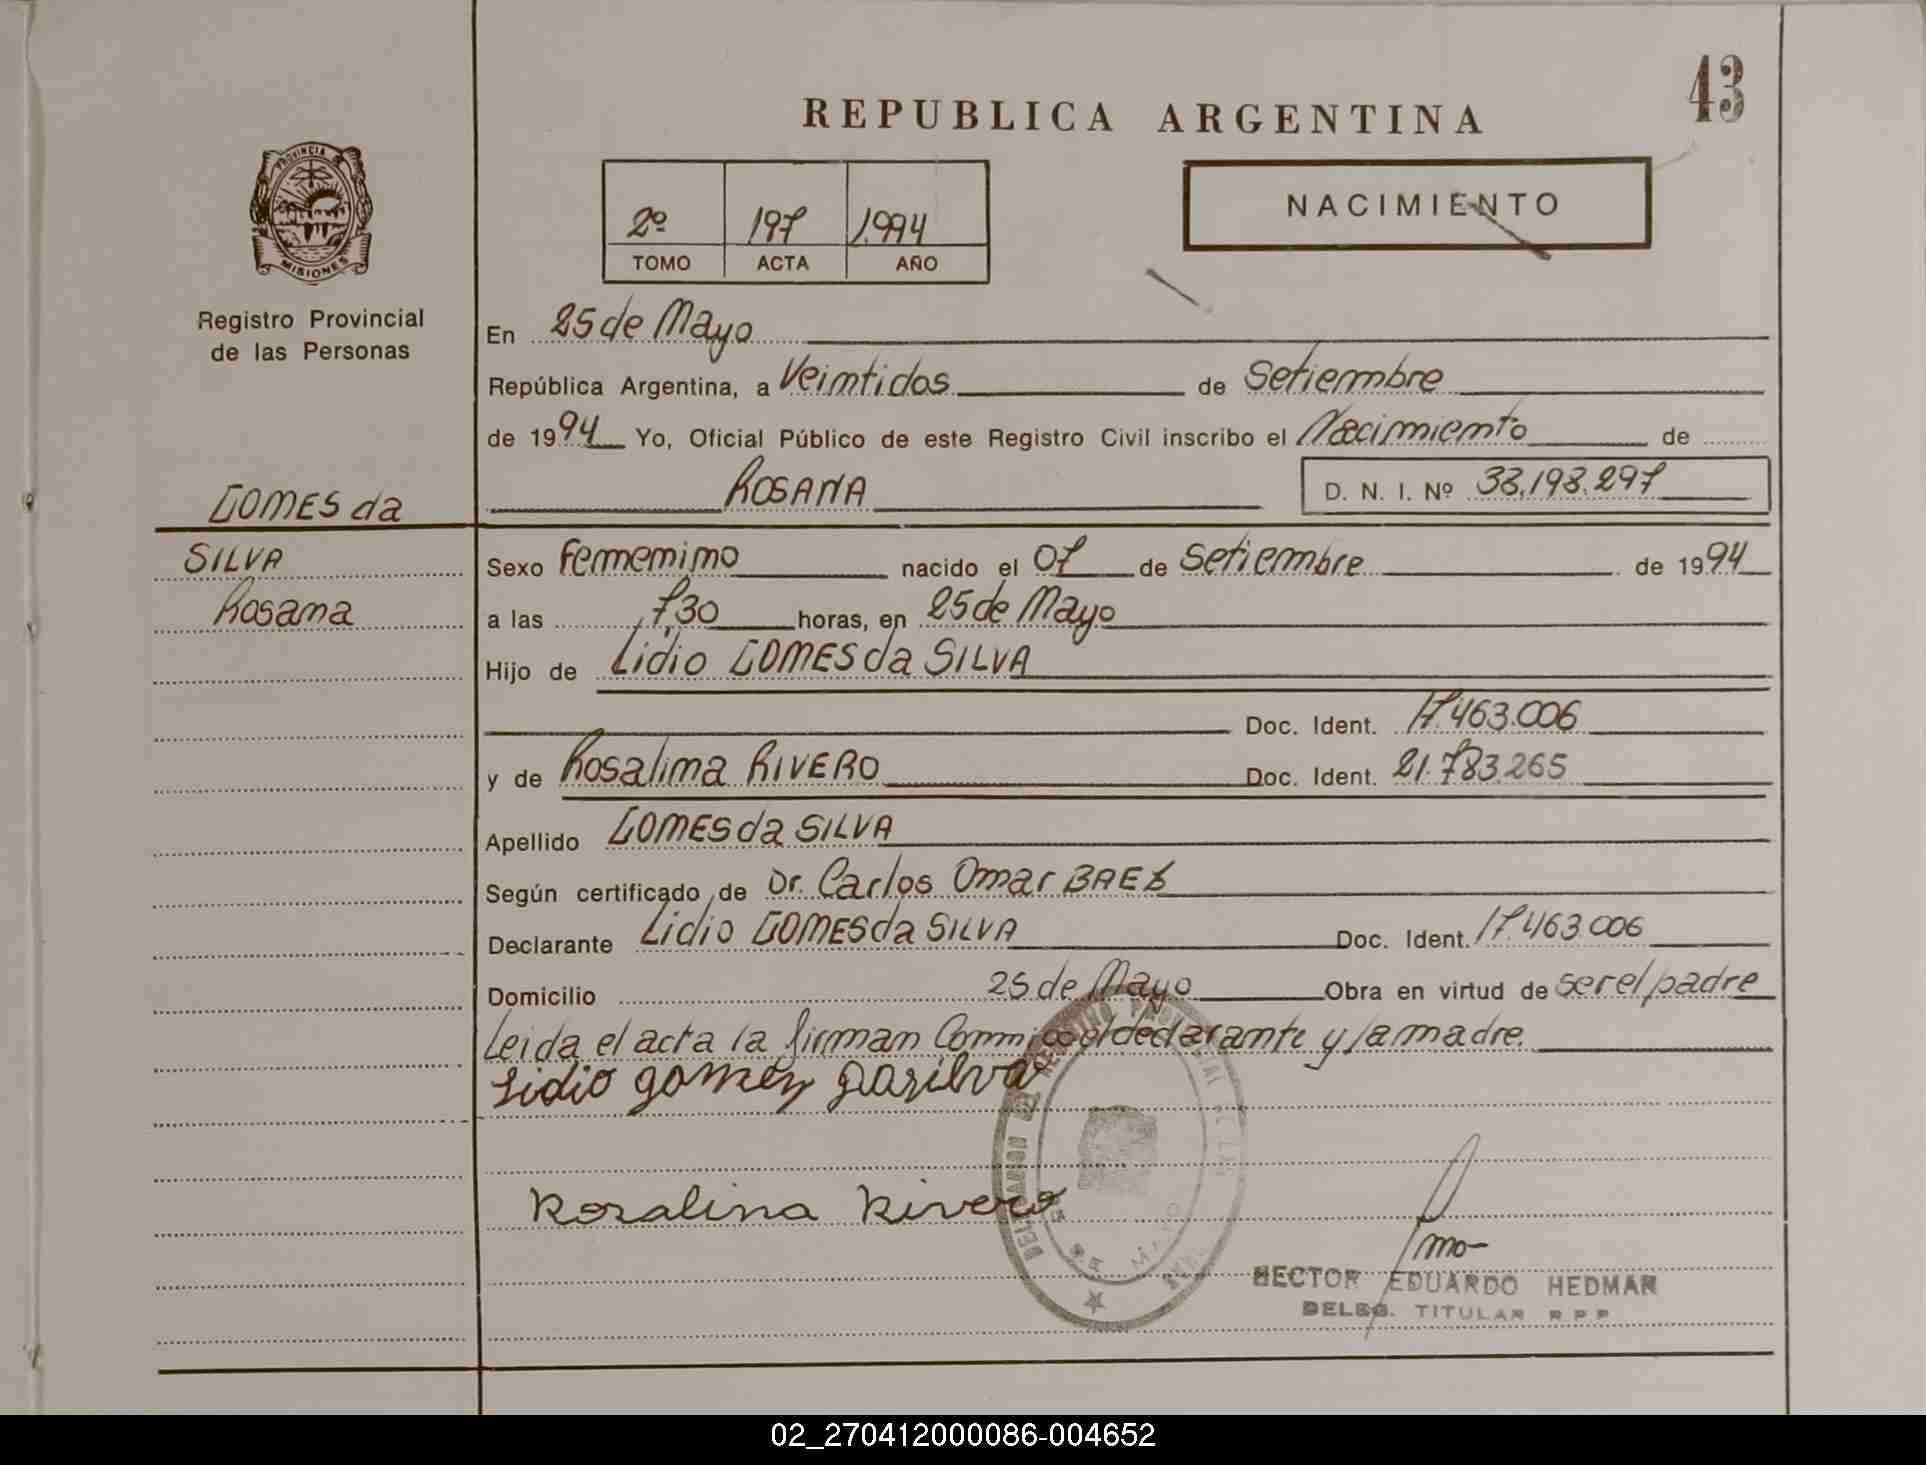 43
REPUBLICA ARGENTINA
PROVINCIA DE
MISIONES
2º 197 1.994
TOMO ACTA AÑO
NACIMIENTO
Registro Provincial
de las Personas
En 25 de Mayo
República Argentina, a Veintidos de Setiembre
de 1994 Yo, Oficial Público de este Registro Civil inscribo el Nacimiento de
ROSANA D. N. I. Nº 38.198.297
GOMES da
SILVA
Rosana
Sexo Femenino nacido el 07 de Setiembre de 1994
a las 7,30 horas, en 25 de Mayo
Hijo de Lidio GOMES da SILVA
Doc. Ident. 17.463.006
y de Rosalina RIVERO Doc. Ident. 21.783.265
Apellido GOMES da SILVA
Según certificado de Dr. Carlos Omar BAEZ
Declarante Lidio GOMES da SILVA Doc. Ident. 17.463.006
Domicilio 25 de Mayo Obra en virtud de ser el padre
Leida el acta la firman Conmigo el declarante y la madre.
Lidio gomez dasilva
Rosalina Rivero
HECTOR EDUARDO HEDMAN
DELEG. TITULAR R.P.P.
02_270412000086-004652